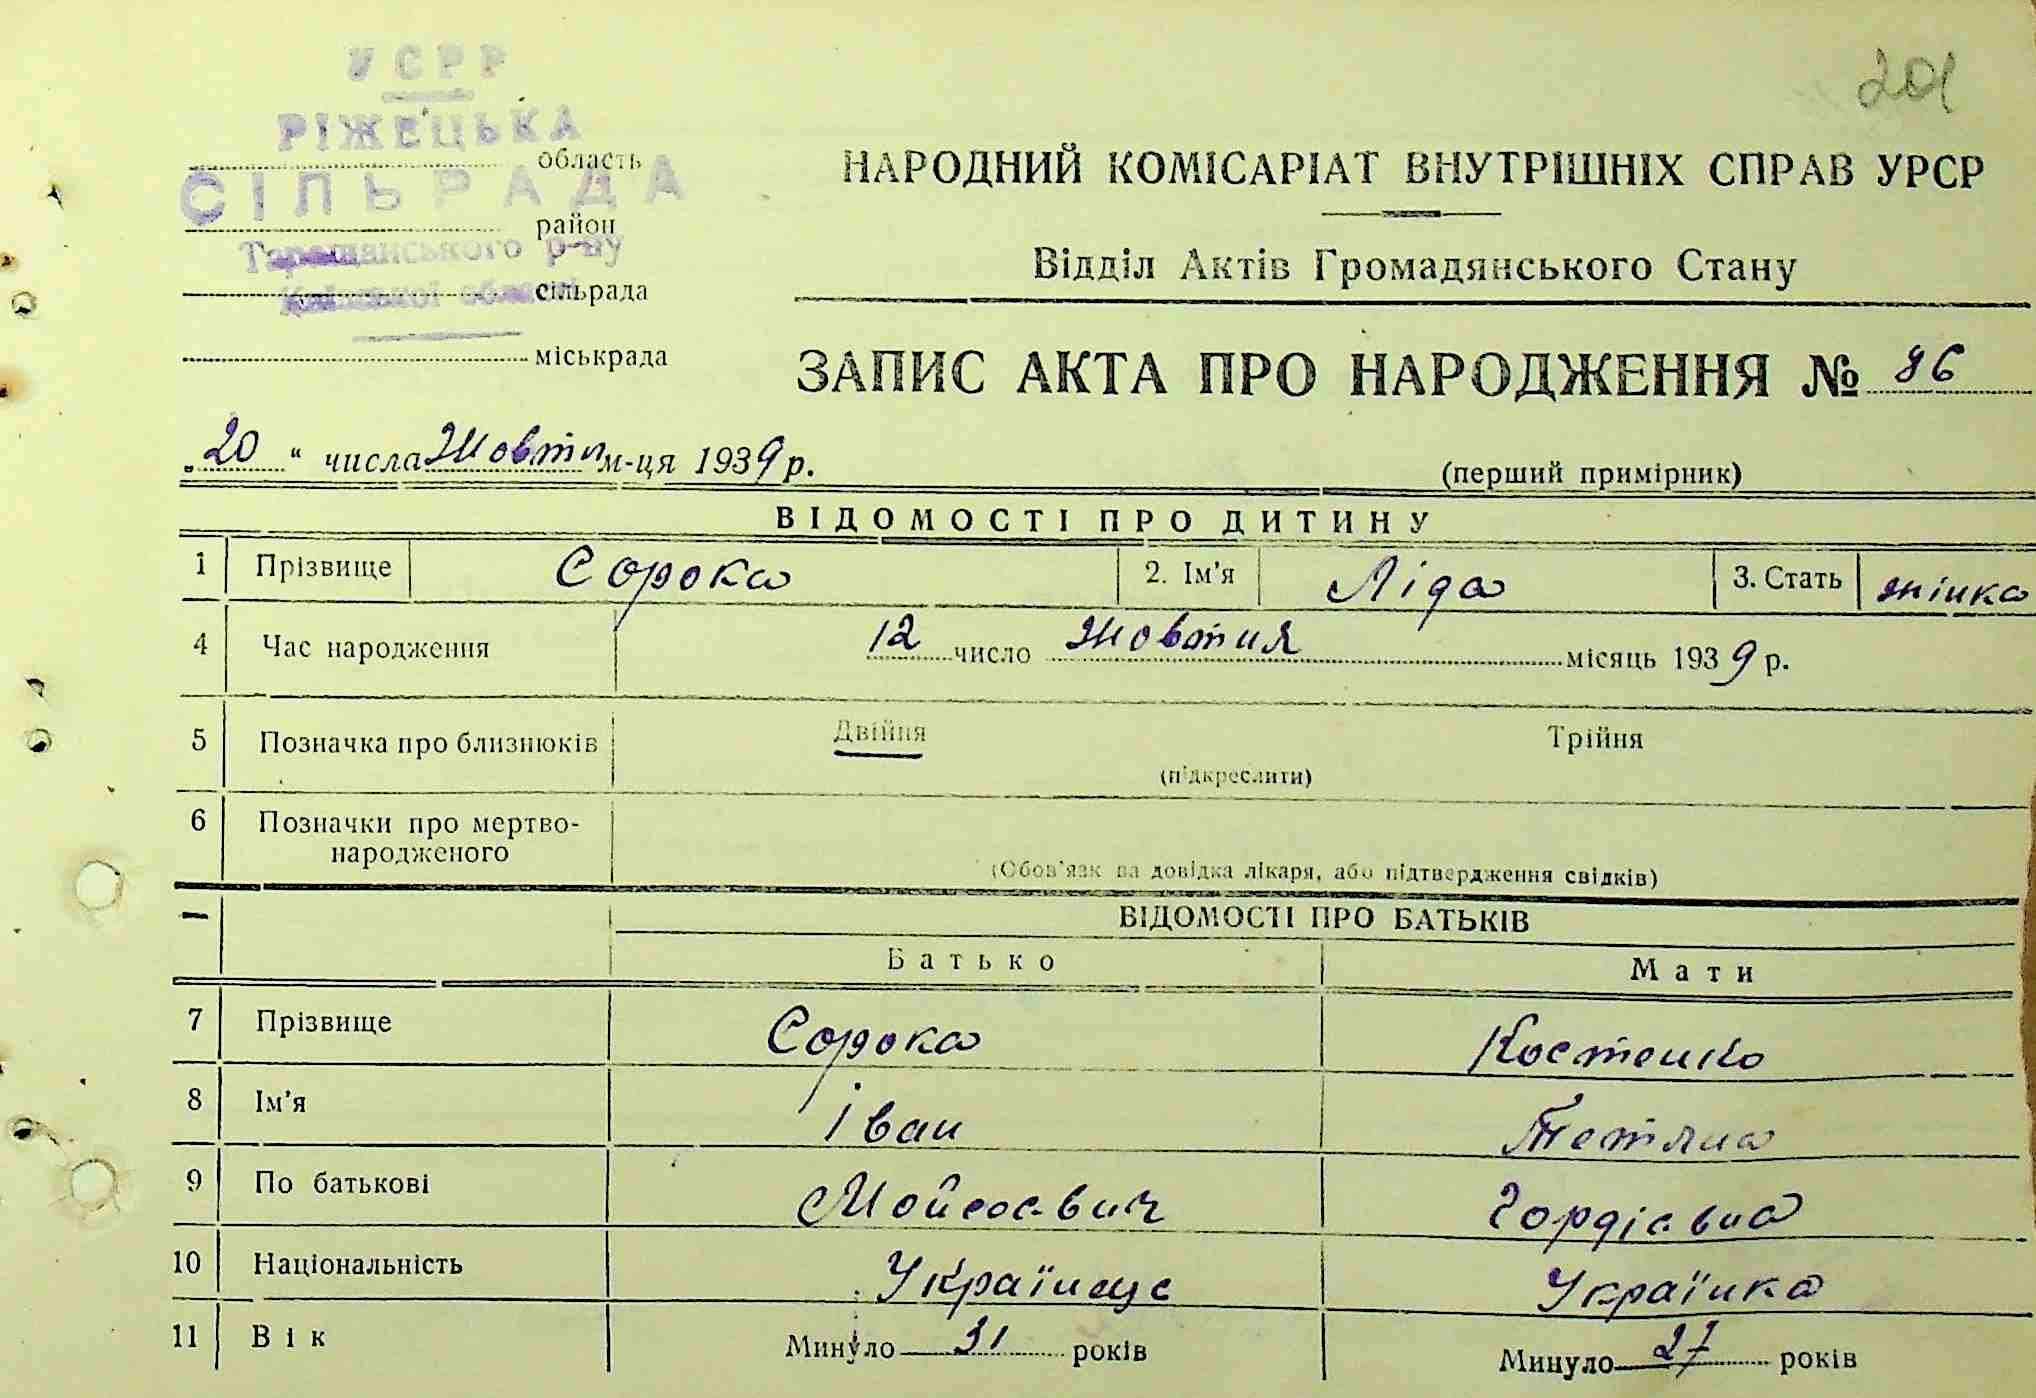 201
УСРР
РІЖЕЦЬКА
область
СІЛЬРАДА
район
Таращанського р-ну
Київської області
сільрада
міськрада
НАРОДНИЙ КОМІСАРІАТ ВНУТРІШНІХ СПРАВ УРСР
Відділ Актів Громадянського Стану
ЗАПИС АКТА ПРО НАРОДЖЕННЯ № 86
„20“ числа Жовтн м-ця 1939 р.
(перший примірник)
ВІДОМОСТІ ПРО ДИТИНУ
1 Прізвище Сорока 2. Ім'я Ліда 3. Стать жінка
4 Час народження 12 число Жовтня місяць 1939 р.
5 Позначка про близнюків Двійня Трійня
(підкреслити)
6 Позначки про мертво-
народженого
(Обов'язкова довідка лікаря, або підтвердження свідків)
ВІДОМОСТІ ПРО БАТЬКІВ
Батько Мати
7 Прізвище Сорока Костенко
8 Ім'я Іван Тетяна
9 По батькові Мойсеєвич Гордієвна
10 Національність Українець Українка
11 Вік Минуло 31 років Минуло 27 років